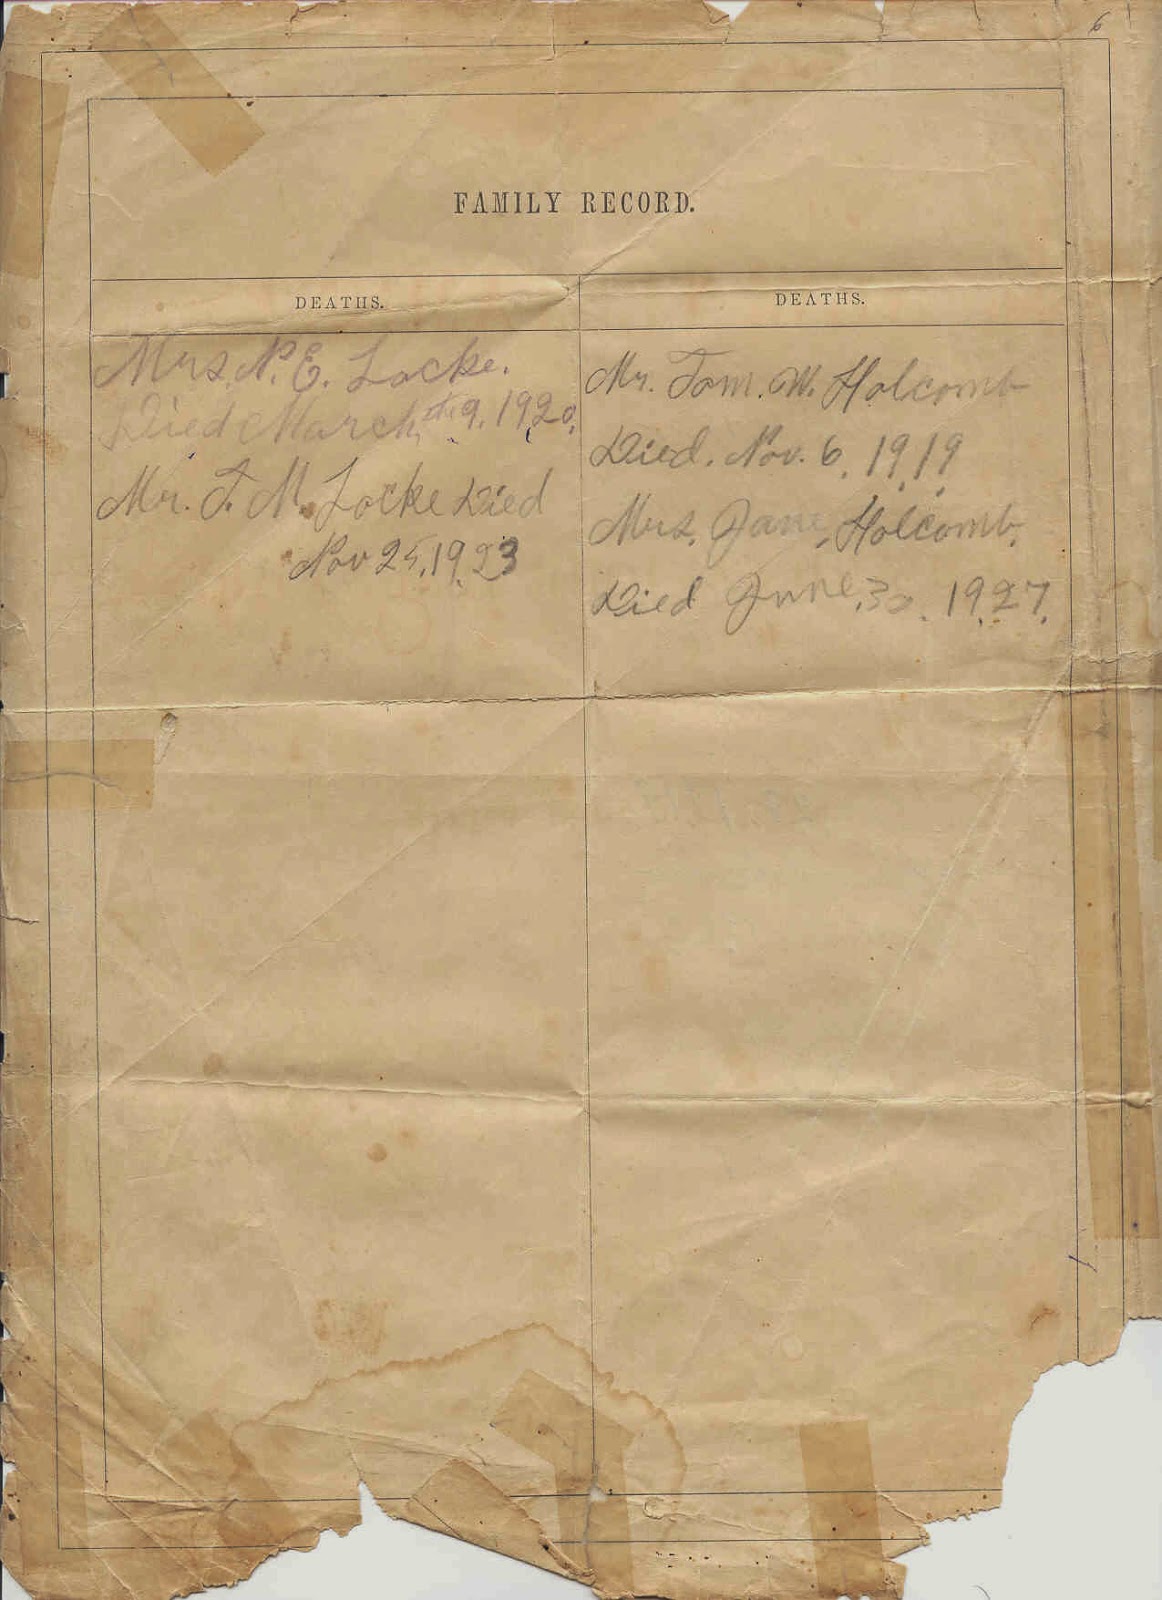 6
FAMILY RECORD.
DEATHS.
Mrs. N. E. Locke.
Died March the 9, 1920.
Mr. F. M. Locke Died
Nov 25, 1923
DEATHS.
Mr. Tom. W. Holcomb
Died. Nov. 6, 1919
Mrs. Jane, Holcomb.
Died June, 30, 1927.